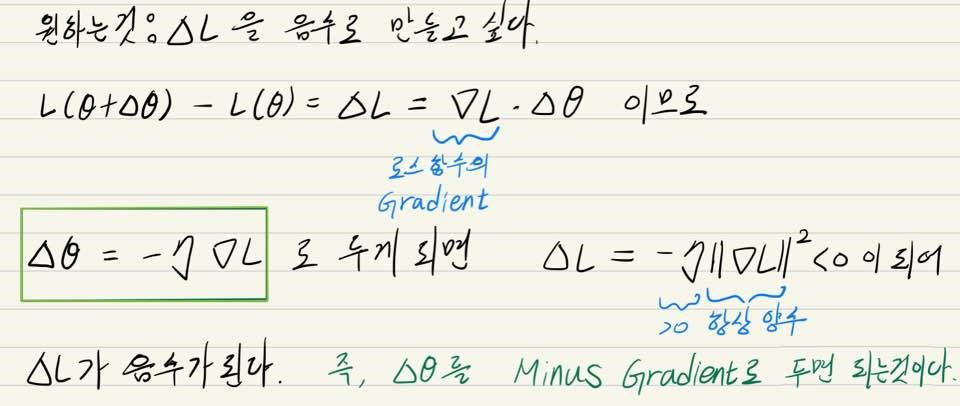 원하는것: ΔL 을 음수로 만들고 싶다.
L(θ+Δθ) - L(θ) = ΔL = ∇L · Δθ 이므로
로스함수의
Gradient
Δθ = -η ∇L 로 두게 되면 ΔL = -η||∇L||² <0 이 되어
>0 항상 양수
ΔL가 음수가 된다. 즉, Δθ를 Minus Gradient로 두면 되는것이다.